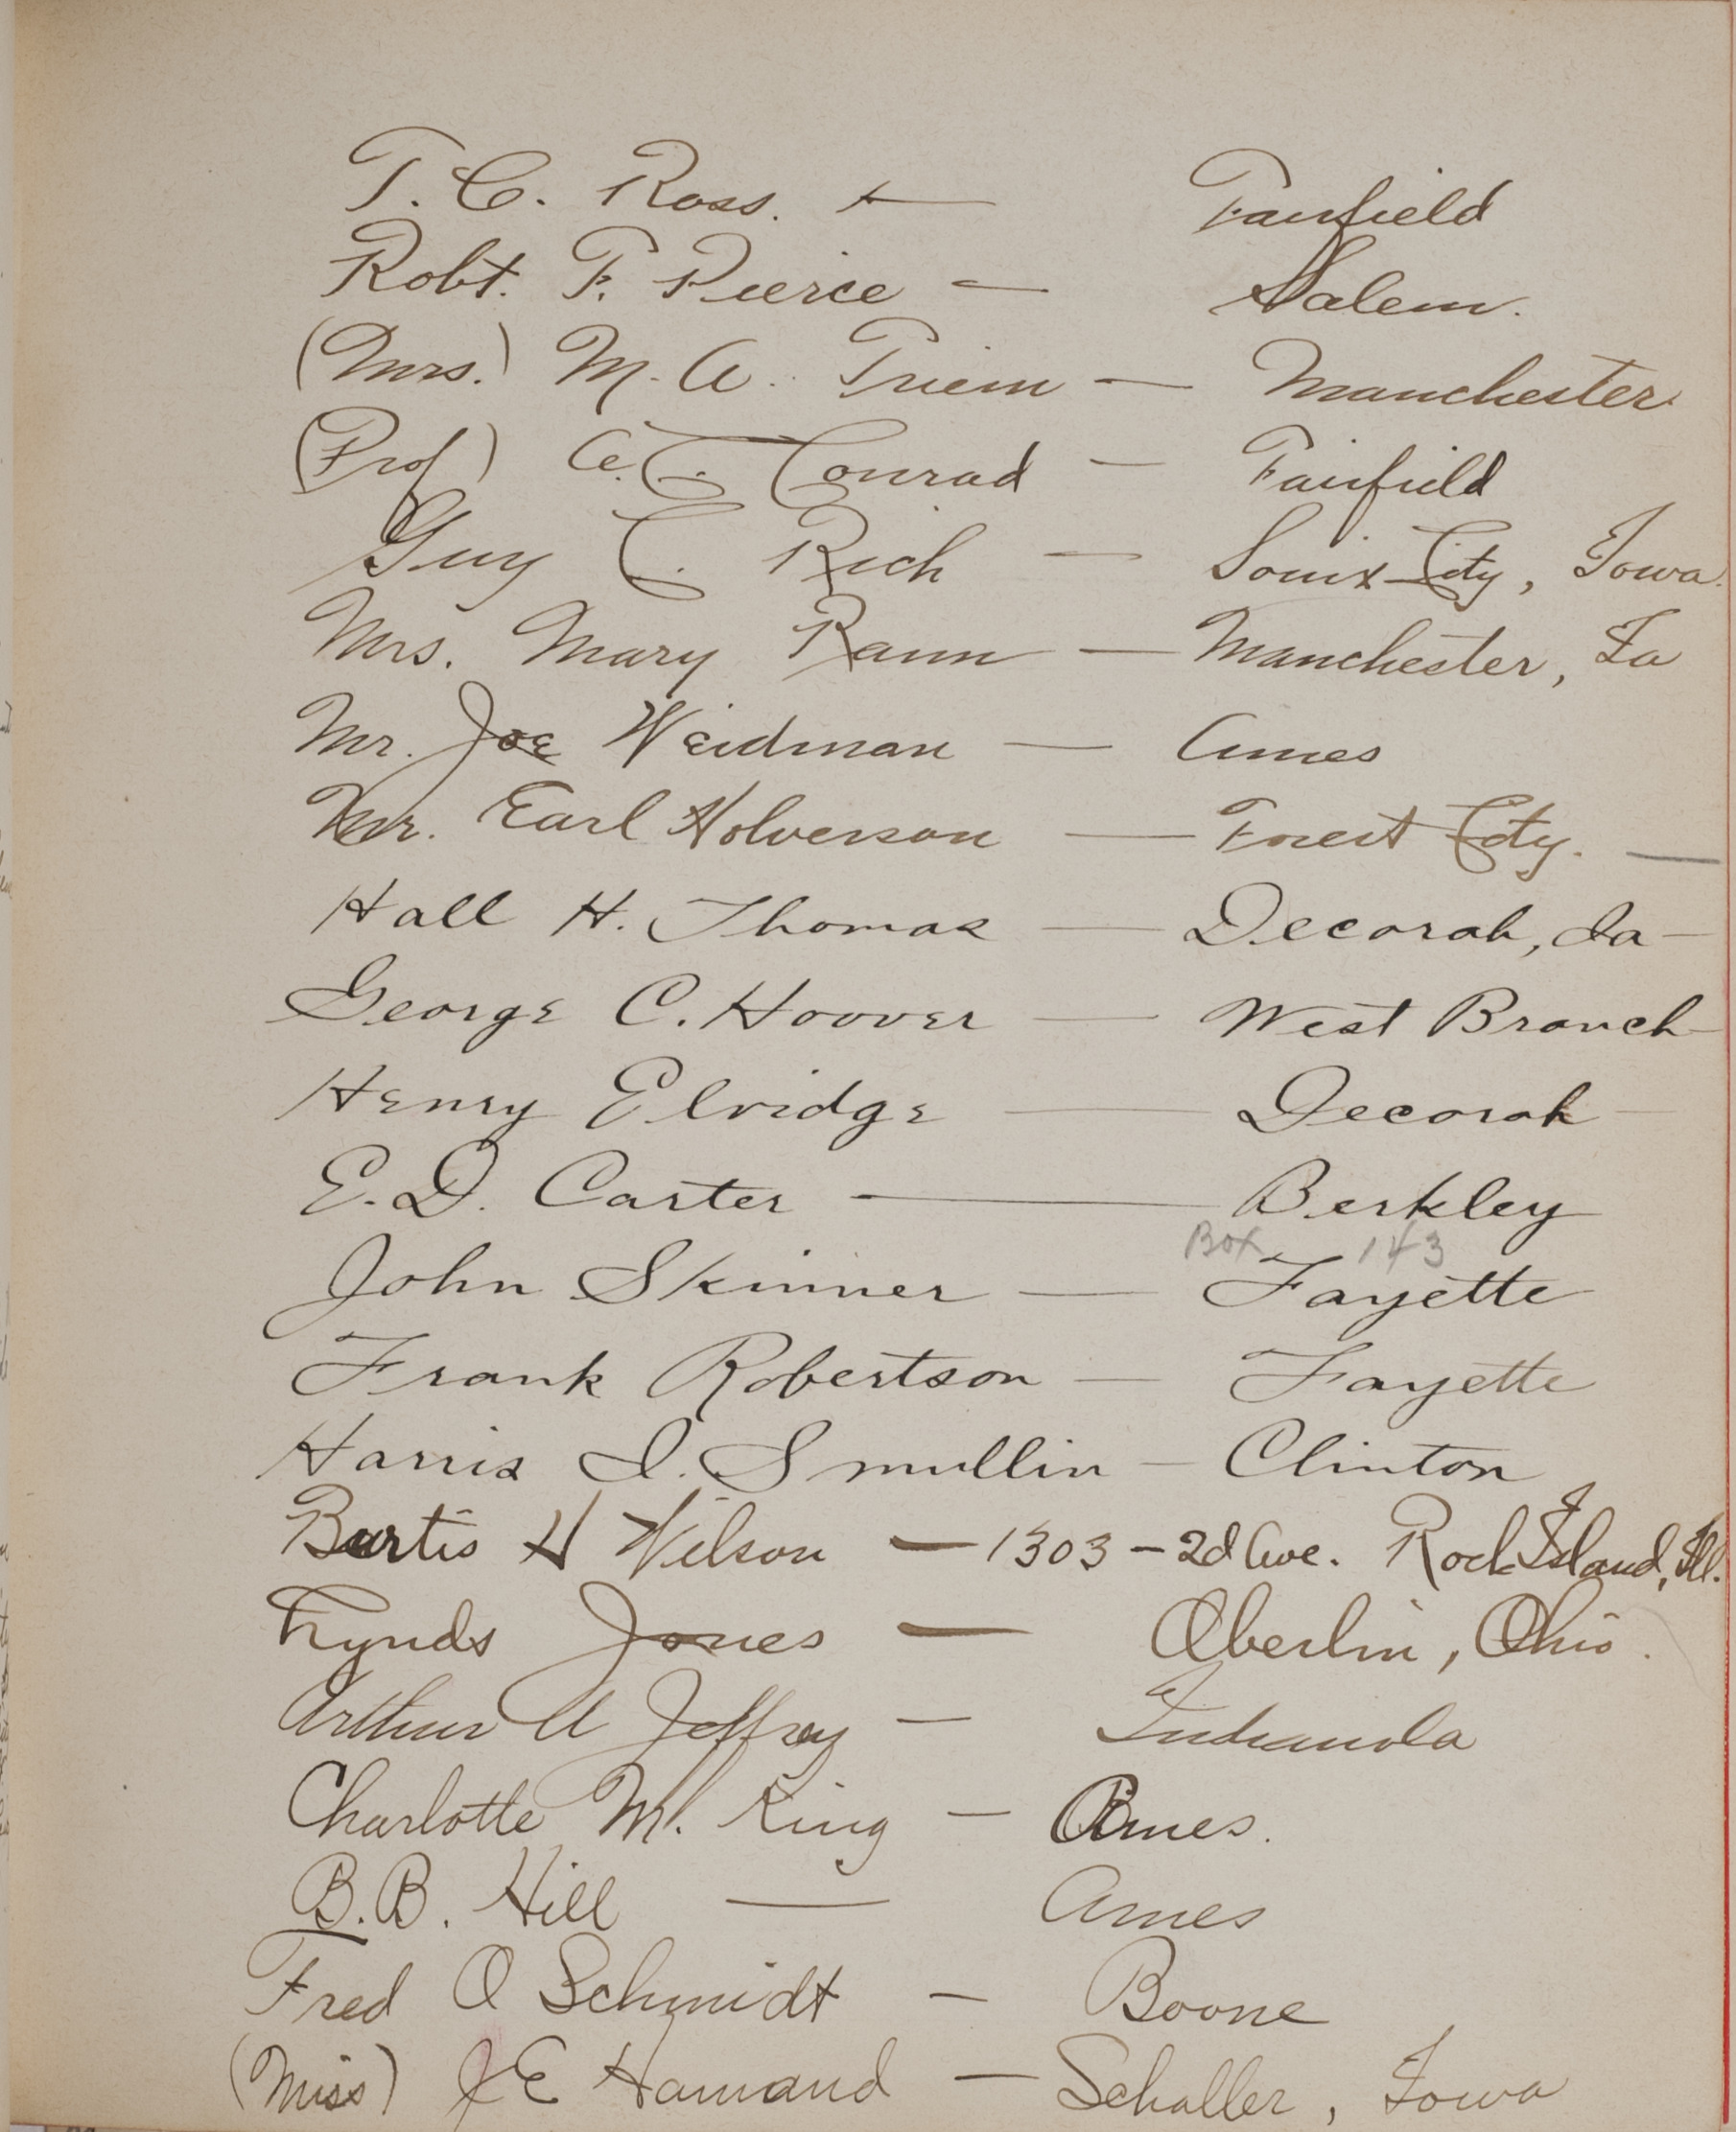 T. C. Ross. — Fairfield
Robt. F. Pierce — Salem.
(Mrs.) M. A. Triem — Manchester
(Prof) A. C. Conrad — Fairfield
Guy C. Rich — Souix City, Iowa.
Mrs. Mary Rann — Manchester, Ia
Mr. Joe Weidman — Ames
Mr. Earl Holverson — Forest City. —
Hall H. Thomas — Decorah, Ia —
George C. Hoover — West Branch
Henry Elvidge — Decorah —
E. D. Carter — Berkley
Box 143
John Skinner — Fayette
Frank Robertson — Fayette
Harris I. Smullin — Clinton
Burtis H Wilson — 1303 - 2d Ave. Rock Island, Ill.
Lynds Jones — Oberlin, Ohio.
Arthur A Jeffrey — Indianola
Charlotte M. King — Ames.
B. B. Hill — Ames
Fred O Schmidt — Boone
(Miss) J E Hamand — Schaller, Iowa